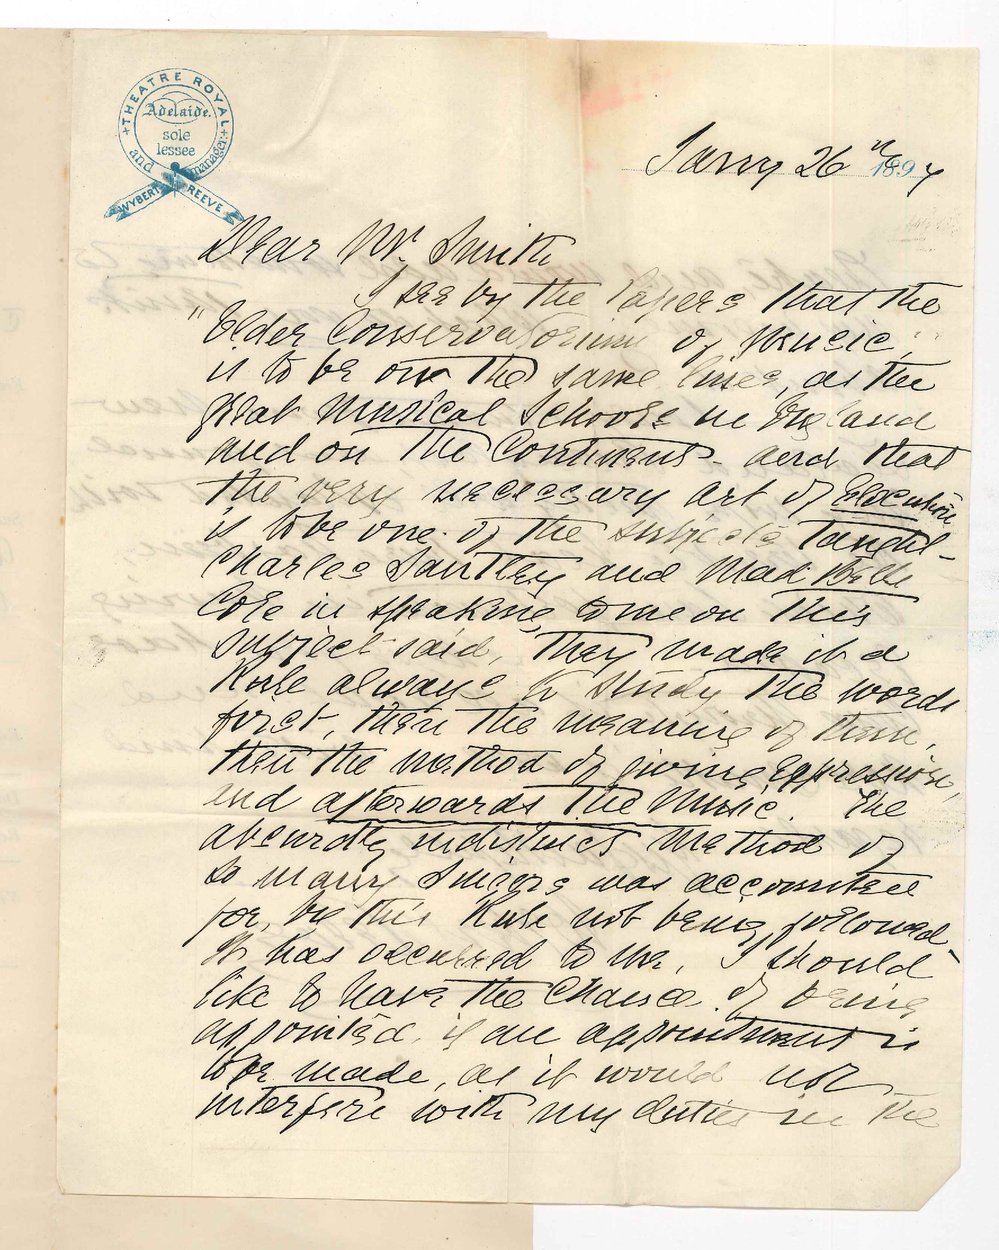 THEATRE ROYAL
Adelaide.
sole
lessee
and manager
WYBERT REEVE
Janry 26th 1897
Dear Mr. Smith
I see by the Papers that the
"Elder Conservatorium of Music"
is to be on the same lines, as the
great Musical Schools in England
and on the Continent - and that
the very necessary art of Elocution
is to be one of the subjects taught -
Charles Santley and Mad Belle
Cole in speaking to me on this
subject said, they made it a
Rule always to study the words
first, then the meaning of them,
then the method of giving Expression,
and afterwards the Music. The
absurdly indistinct method of
so many Singers was accounted
for, by this Rule not being followed
It has occurred to me, I should
like to have the Chance of being
appointed, if an appointment is
to be made, as it would not
interfere with my duties in the